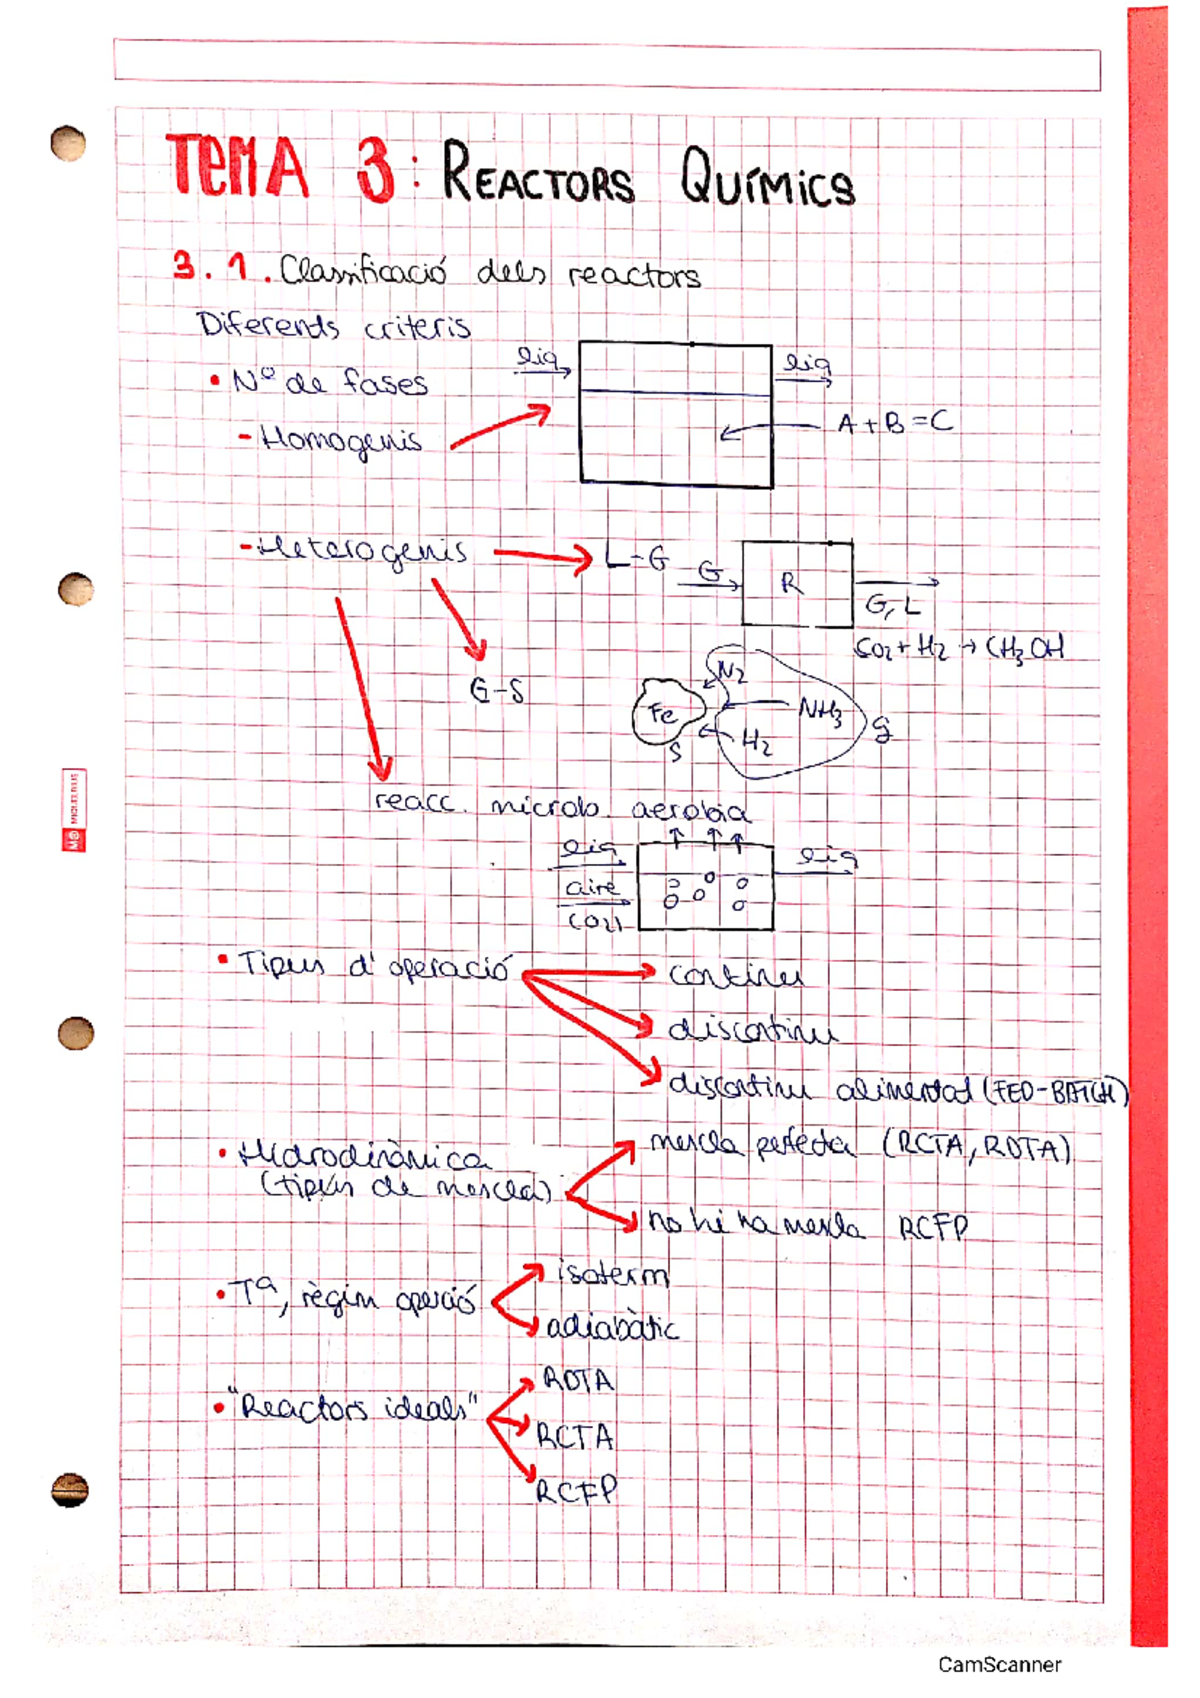 TEMA 3: REACTORS QUÍMICS
3.1. Classificació dels reactors
Diferents criteris
• Nº de fases
- Homogenis
liq
liq
A + B = C
- Heterogenis
L-G
G
R
G, L
CO2 + H2 → CH3OH
G-S
Fe
S
N2
NH3
H2
g
reacc. microb. aerobia
liq
aire
(O2)
liq
• Tipus d'operació
continu
discontinu
discontinu alimentat (FED-BATCH)
• Hidrodinàmica
(tipus de mescla)
mescla perfecta (RCTA, RDTA)
no hi ha mescla RCFP
• Tª, règim operció
isoterm
adiabàtic
• "Reactors ideals"
RDTA
RCTA
RCFP
MIQUELRIUS
CamScanner